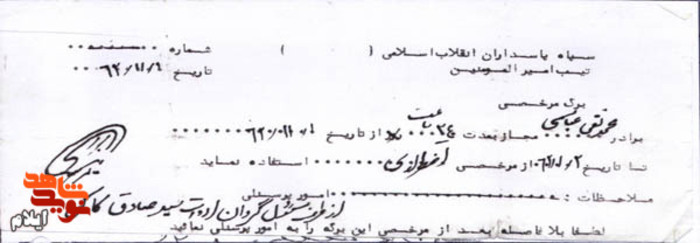 سپاه پاسداران انقلاب اسلامی ( ) شماره
تیپ امیر المومنین تاریخ ۶۲/۱۱/۱
برگ مرخصی
برادر محمد تقی عباسی مجاز بمدت ۲۴ ساعت از تاریخ ۶۲/۱۱/۱
تا تاریخ ۶۲/۱۱/۲ از مرخصی اضطراری استفاده نماید
ملاحظات : امور پرسنلی
از طرف مسئول گردان سید صادق
لطفا بلا فاصله بعد از مرخصی این برگه را به امور پرسنلی نمائید
شاهد
نوید
ایلام